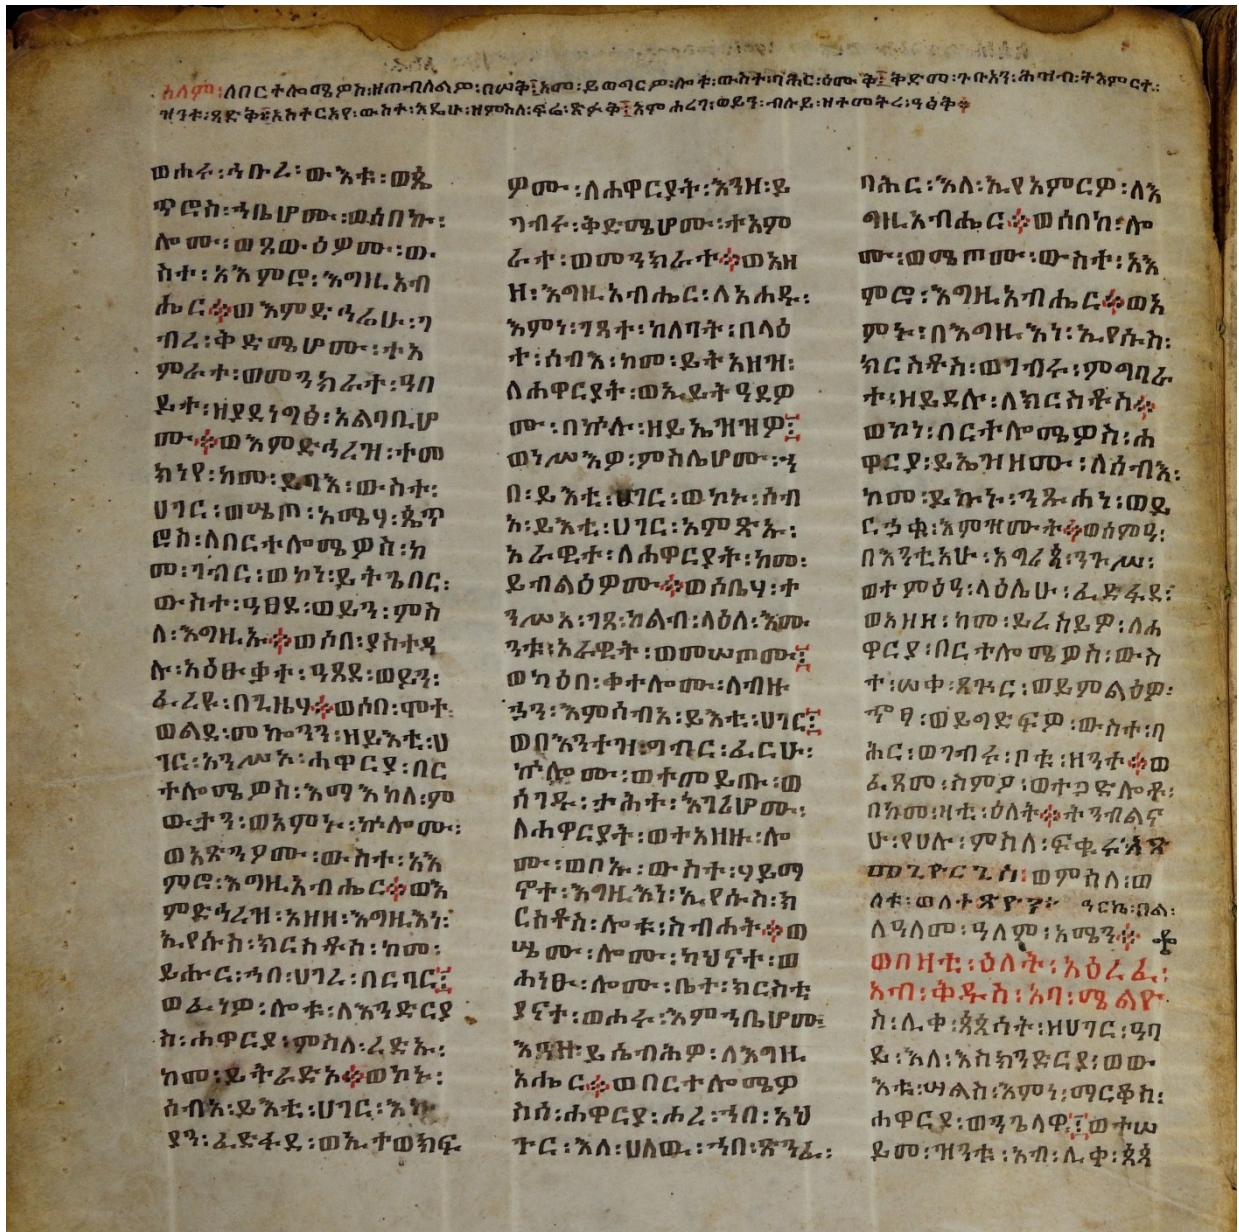 ሰላም፡ለበርተሎሜዎስ፡ዘጠብለልዎ፡በሠቅ፤አመ፡ይወግርዎ፡ሎቱ፡ውስተ፡ባሕር፡ዕሙቅ፤ቅድመ፡ጉቡአን፡ሕዝብ፡ትእምርተ፡
ዝንቱ፡ጻድቅ፤አስተርአየ፡ውስተ፡እዴሁ፡ዘምስለ፡ፍሬ፡ጽፉቅ፤እም፡ሐረገ፡ወይን፡ብሉይ፡ዝተመትረ፡ዓፅቅ።
ወሐሩ፡ኅቡረ፡ውእቱ፡ወጴ
ጥሮስ፡ኀቤሆሙ፡ወሰበኩ፡
ሎሙ፡ወጸውዕዎሙ፡ው
ስተ፡አእምሮ፡እግዚአብ
ሔር።ወእምድኅሬሁ፡ገ
ብረ፡ቅድሜሆሙ፡ተአ
ምራተ፡ወመንክራተ፡ዓበ
ይተ፡ዘያደነግፅ፡አልባቢሆ
ሙ።ወእምድኅረዝ፡ተመ
ክነየ፡ከመ፡ይባእ፡ውስተ፡
ሀገር፡ወሤጦ፡አሜሃ፡ጴጥ
ሮስ፡ለበርተሎሜዎስ፡ከ
መ፡ገብር፡ወኮነ፡ይትጌበር፡
ውስተ፡ዓፀደ፡ወይን፡ምስ
ለ፡እግዚኡ።ወሶበ፡ያስተዳ
ሉ፡አዕፁቃተ፡ዓጸደ፡ወይን፡
ፈረዩ፡በጊዜሃ።ወሶበ፡ሞተ፡
ወልደ፡መኰንን፡ዘይእቲ፡ሀ
ገር፡አንሥኦ፡ሐዋርያ፡በር
ተሎሜዎስ፡እማእከለ፡ም
ውታን፡ወአምኑ፡ኵሎሙ፡
ወአጽንዖሙ፡ውስተ፡አእ
ምሮ፡እግዚአብሔር።ወእ
ምድኅረዝ፡አዘዘ፡እግዚእነ፡
ኢየሱስ፡ክርስቶስ፡ከመ፡
ይሑር፡ኀበ፡ሀገረ፡በርባር፤
ወፈነዎ፡ሎቱ፡ለእንድርያ
ስ፡ሐዋርያ፡ምስለ፡ረድኡ፡
ከመ፡ይትራድአ።ወኮኑ፡
ሰብአ፡ይእቲ፡ሀገር፡እኩ
ያን፡ፈድፋደ፡ወኢተወክፍ
ዎሙ፡ለሐዋርያት፡እንዘ፡ይ
ገብሩ፡ቅድሜሆሙ፡ተአም
ራተ፡ወመንክራተ።ወአዘ
ዘ፡እግዚአብሔር፡ለአሐዱ፡
እምነ፡ገጻተ፡ከለባት፡በላዕ
ተ፡ሰብእ፡ከመ፡ይትአዘዝ፡
ለሐዋርያት፡ወኢይትዓደዎ
ሙ፡በኵሉ፡ዘይኤዝዝዎ፤
ወነሥእዎ፡ምስሌሆሙ፡ኀ
በ፡ይእቲ፡ሀገር፡ወኮኑ፡ሰብ
አ፡ይእቲ፡ሀገር፡አምጽኡ፡
አራዊተ፡ለሐዋርያት፡ከመ፡
ይብልዕዎሙ።ወሶቤሃ፡ተ
ንሥአ፡ገጸ፡ከልብ፡ላዕለ፡እሙ
ንቱ፡አራዊት፡ወመሠጦሙ፤
ወካዕበ፡ቀተሎሙ፡ለብዙ
ኃን፡እምሰብአ፡ይእቲ፡ሀገር፤
ወበእንተዝ፡ግብር፡ፈርሁ፡
ኵሎሙ፡ወተመይጡ፡ወ
ሰገዱ፡ታሕተ፡እገሪሆሙ፡
ለሐዋርያት፡ወተአዘዙ፡ሎ
ሙ፡ወቦኡ፡ውስተ፡ሃይማ
ኖተ፡እግዚእነ፡ኢየሱስ፡ክ
ርስቶስ፡ሎቱ፡ስብሐት።ወ
ሤሙ፡ሎሙ፡ካህናተ፡ወ
ሐነፁ፡ሎሙ፡ቤተ፡ክርስቲ
ያናተ፡ወሐሩ፡እምኀቤሆሙ፤
እንዘ፡ይሴብሕዎ፡ለእግዚ
አሔር።ወበርተሎሜዎ
ስሰ፡ሐዋርያ፡ሐረ፡ኀበ፡አህ
ጉር፡እለ፡ሀለዉ፡ኀበ፡ጽንፈ፡
ባሕር፡እለ፡ኢየአምርዎ፡ለእ
ግዚአብሔር።ወሰበከ፡ሎ
ሙ፡ወሜጦሙ፡ውስተ፡አእ
ምሮ፡እግዚአብሔር።ወአ
ምኑ፡በእግዚእነ፡ኢየሱስ፡
ክርስቶስ፡ወገብሩ፡ምግባራ
ተ፡ዘይደሉ፡ለክርስቶስ።
ወኮነ፡በርተሎሜዎስ፡ሐ
ዋርያ፡ይኤዝዘሙ፡ለሰብእ፡
ከመ፡ይኩኑ፡ንጹሐነ፡ወይ
ርኃቁ፡እምዝሙት።ወሰምዓ፡
በእንቲአሁ፡አግሪጳ፡ንጉሥ፡
ወተምዕዓ፡ላዕሌሁ፡ፈድፋደ፡
ወአዘዘ፡ከመ፡ይረስይዎ፡ለሐ
ዋርያ፡በርተሎሜዎስ፡ውስ
ተ፡ሠቀ፡ጸጕር፡ወይምልዕዎ፡
ኆፃ፡ወይግድፍዎ፡ውስተ፡ባ
ሕር፡ወገብሩ፡ቦቱ፡ዘንተ።ወ
ፈጸመ፡ስምዖ፡ወተጋድሎቶ፡
በከመ፡ዛቲ፡ዕለት።ትንብልና
ሁ፡የሀሉ፡ምስለ፡ፍቁሩ፡
ወምስለ፡ወ
ለቱ፡ወለተ፡ጽዮን፡
ለዓለመ፡ዓለም፡አሜን።
ወበዛቲ፡ዕለት፡አዕረፈ፡
አብ፡ቅዱስ፡አባ፡ሜልዮ
ስ፡ሊቀ፡ጳጳሳት፡ዘሀገር፡ዓባ
ይ፡እለ፡እስክንድርያ፡ወው
እቱ፡ሣልስ፡እምነ፡ማርቆስ፡
ሐዋርያ፡ወንጌላዊ፤ወተሠ
ይመ፡ዝንቱ፡አብ፡ሊቀ፡ጳጳ